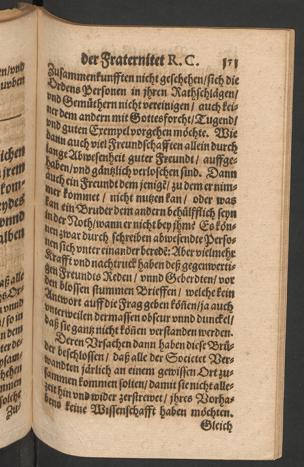 der Fraternitet R. C. 151
Zusammenkunfften nicht geschehen/sich die
Ordens Personen in jhren Rathschlägen/
vnd Gemüthern nicht vereinigen/ auch kei-
ner dem andern mit Gottesforcht/Tugend/
vnd guten Exempel vorgehen möchte. Wie
dann auch viel Freundschafften allein durch
lange Abwesenheit guter Freundt/ auffge-
haben/vnd gäntzlich verloschen sind. Dann
auch ein Freundt dem jenigẽ/ zu dem er nim-
mer kommet / nicht nutzen kan/ oder was
kan ein Bruder dem andern behülfflich seyn
in der Noth/wann er nicht bey jhme? Es kön-
nen zwar durch schreiben abwesendte Perso-
nen sich vnter einander beredẽ: Aber vielmehr
Krafft vnd nachtruck haben deß gegenwerti-
gen Freundts Reden/ vnnd Geberdten/ vor
den blossen stummen Brieffen/ welche kein
Antwort auff die Frag geben köñen/ja auch
vnterweilen dermassen obscur vnnd dunckel/
daß sie gantz nicht köñen verstanden werden.
Deren Vrsachen dann haben diese Brü-
der beschlossen/ daß alle der Societet Ver-
wandten järlich an einem gewissen Ort zu-
sammen kommen solten/ damit sie nicht alle-
zeit hin vnd wider zerstrewet/ jhres Vorha-
bens keine Wissenschafft haben möchten.
Gleich